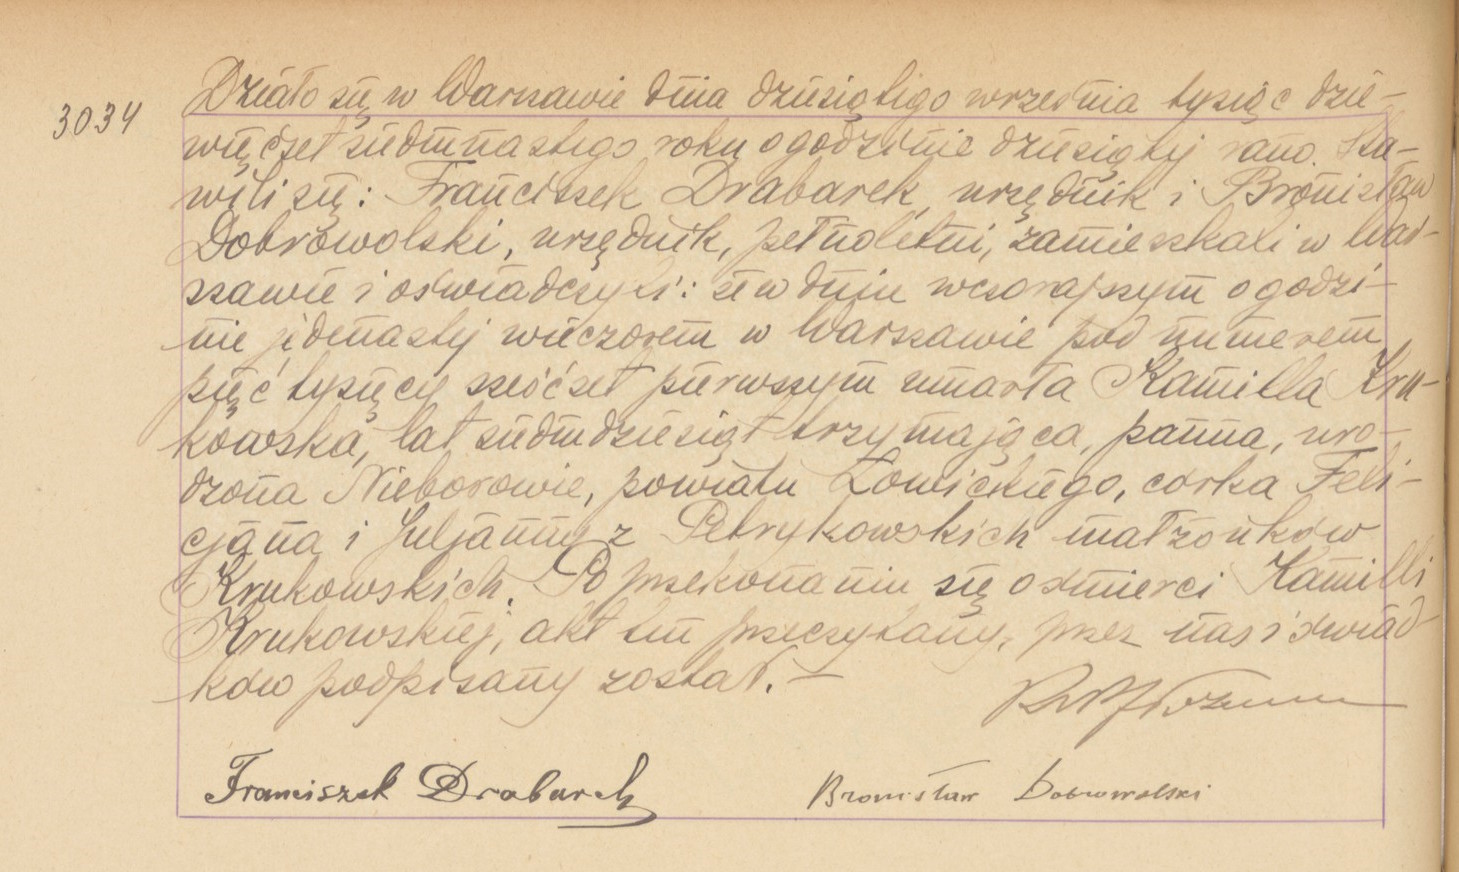 3034
Działo się w Warszawie dnia dziesiątego września tysiąc dzie-
więćset siedmnastego roku o godzinie dziesiątej rano. Sta-
wili się: Franciszek Drabarek, urzędnik i Bronisław
Dobrowolski, urzędnik, pełnoletni, zamieszkali w War-
szawie i oświadczyli: że w dniu wczorajszym o godzi-
nie jedenastej wieczorem w Warszawie pod numerem
pięć tysięcy sześćset pierwszym umarła Kamilla Kru-
kowska, lat siedmdziesiąt trzy mająca, panna, uro-
dzona Nieborowie, powiatu Łowickiego, córka Feli-
cjana i Juljanny z Petrykowskich małżonków
Krukowskich. Po przekonaniu się o śmierci Kamilli
Krukowskiej, akt ten przeczytany, przez nas i świad-
ków podpisany został. —
Franciszek Drabarek
Bronisław Dobrowolski